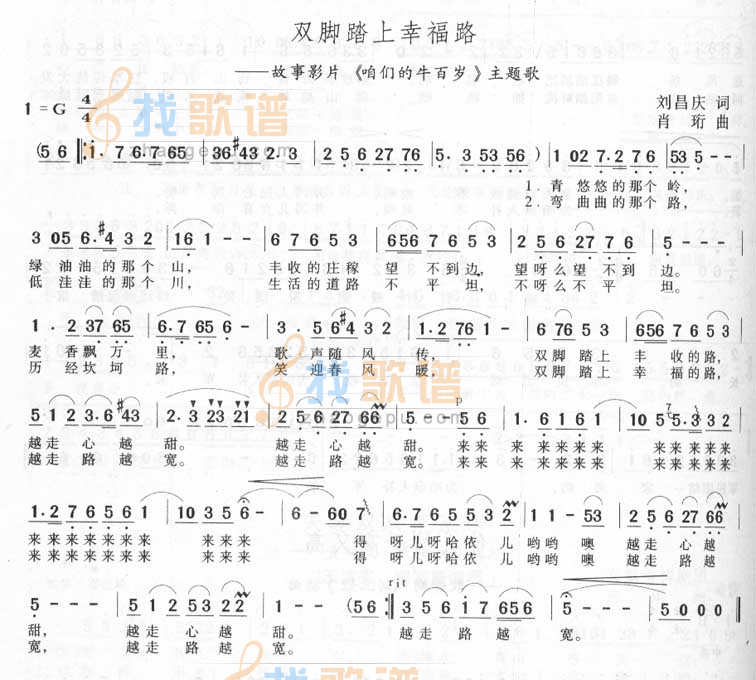 双脚踏上幸福路
——故事影片《咱们的牛百岁》主题歌
1 = G 4/4
刘昌庆 词
肖珩 曲
找歌谱
zhaogepu.com
(5 6 ‖: 1. 7 6.7 65 | 36 #43 2.3 | 2 5 6 27 76 | 5. 3 53 56 ) | 1 02 7.2 7 6 | 53 5 - - |
1. 青 悠悠的那个 岭，
2. 弯 曲曲的那个 路，
3 05 6.#4 3 2 | 16 1 - - | 6 7 6 5 3 | 656 7 6 5 3 | 2 5 6 27 7 6 | 5 - - - |
绿 油油的 那个 山， 丰收的庄稼 望 不到边， 望呀么望 不到 边。
低 洼洼的 那个 川， 生活的道路 不 平 坦， 不呀么不 平 坦。
1. 2 37 65 | 6.7 65 6 - | 3. 5 6#4 3 2 | 1.2 76 1 - | 6 76 5 3 | 656 7 6 5 3 |
麦 香飘万 里， 歌 声随 风 传， 双脚 踏上 丰 收的路，
历 经坎 坷 路， 笑 迎春 风 暖， 双脚 踏上 幸 福的路，
找歌谱
zhaogepu.com
5 1 2 3.6 #43 | 2. 3 23 21 | 2 5 6 27 66 | 5 - - 5 6 | 1. 6 1 6 1 | 10 5 5.3 3 2 |
越走 心 越 甜。 越走 心 越 甜。 来来 来 来来来来 来来来来来
越走 路 越 宽。 越走 路 越 宽。 来来 来 来来来来 来来来来来
1.2 7 6 5 6 1 | 10 3 5 6 - | 6 - 60 7 | 6.7 6 5 5 3 2 | 1 1 - 53 | 2 5 6 27 66 |
来来来来 来来来 得 呀儿呀哈依 儿 哟哟 噢 越走 心越
来来来来 来来来 得 呀儿呀哈依 儿 哟哟 噢 越走 路越
rit
5 - - - | 5 1 2 53 22 | 1 - - (5 6 :‖ 5 3 5 6 1 7 656 | 5 - - - | 5 0 0 0 ‖
甜， 越走 心 越 甜。 越走 路 越 宽。
宽， 越走 路 越 宽。
找歌谱